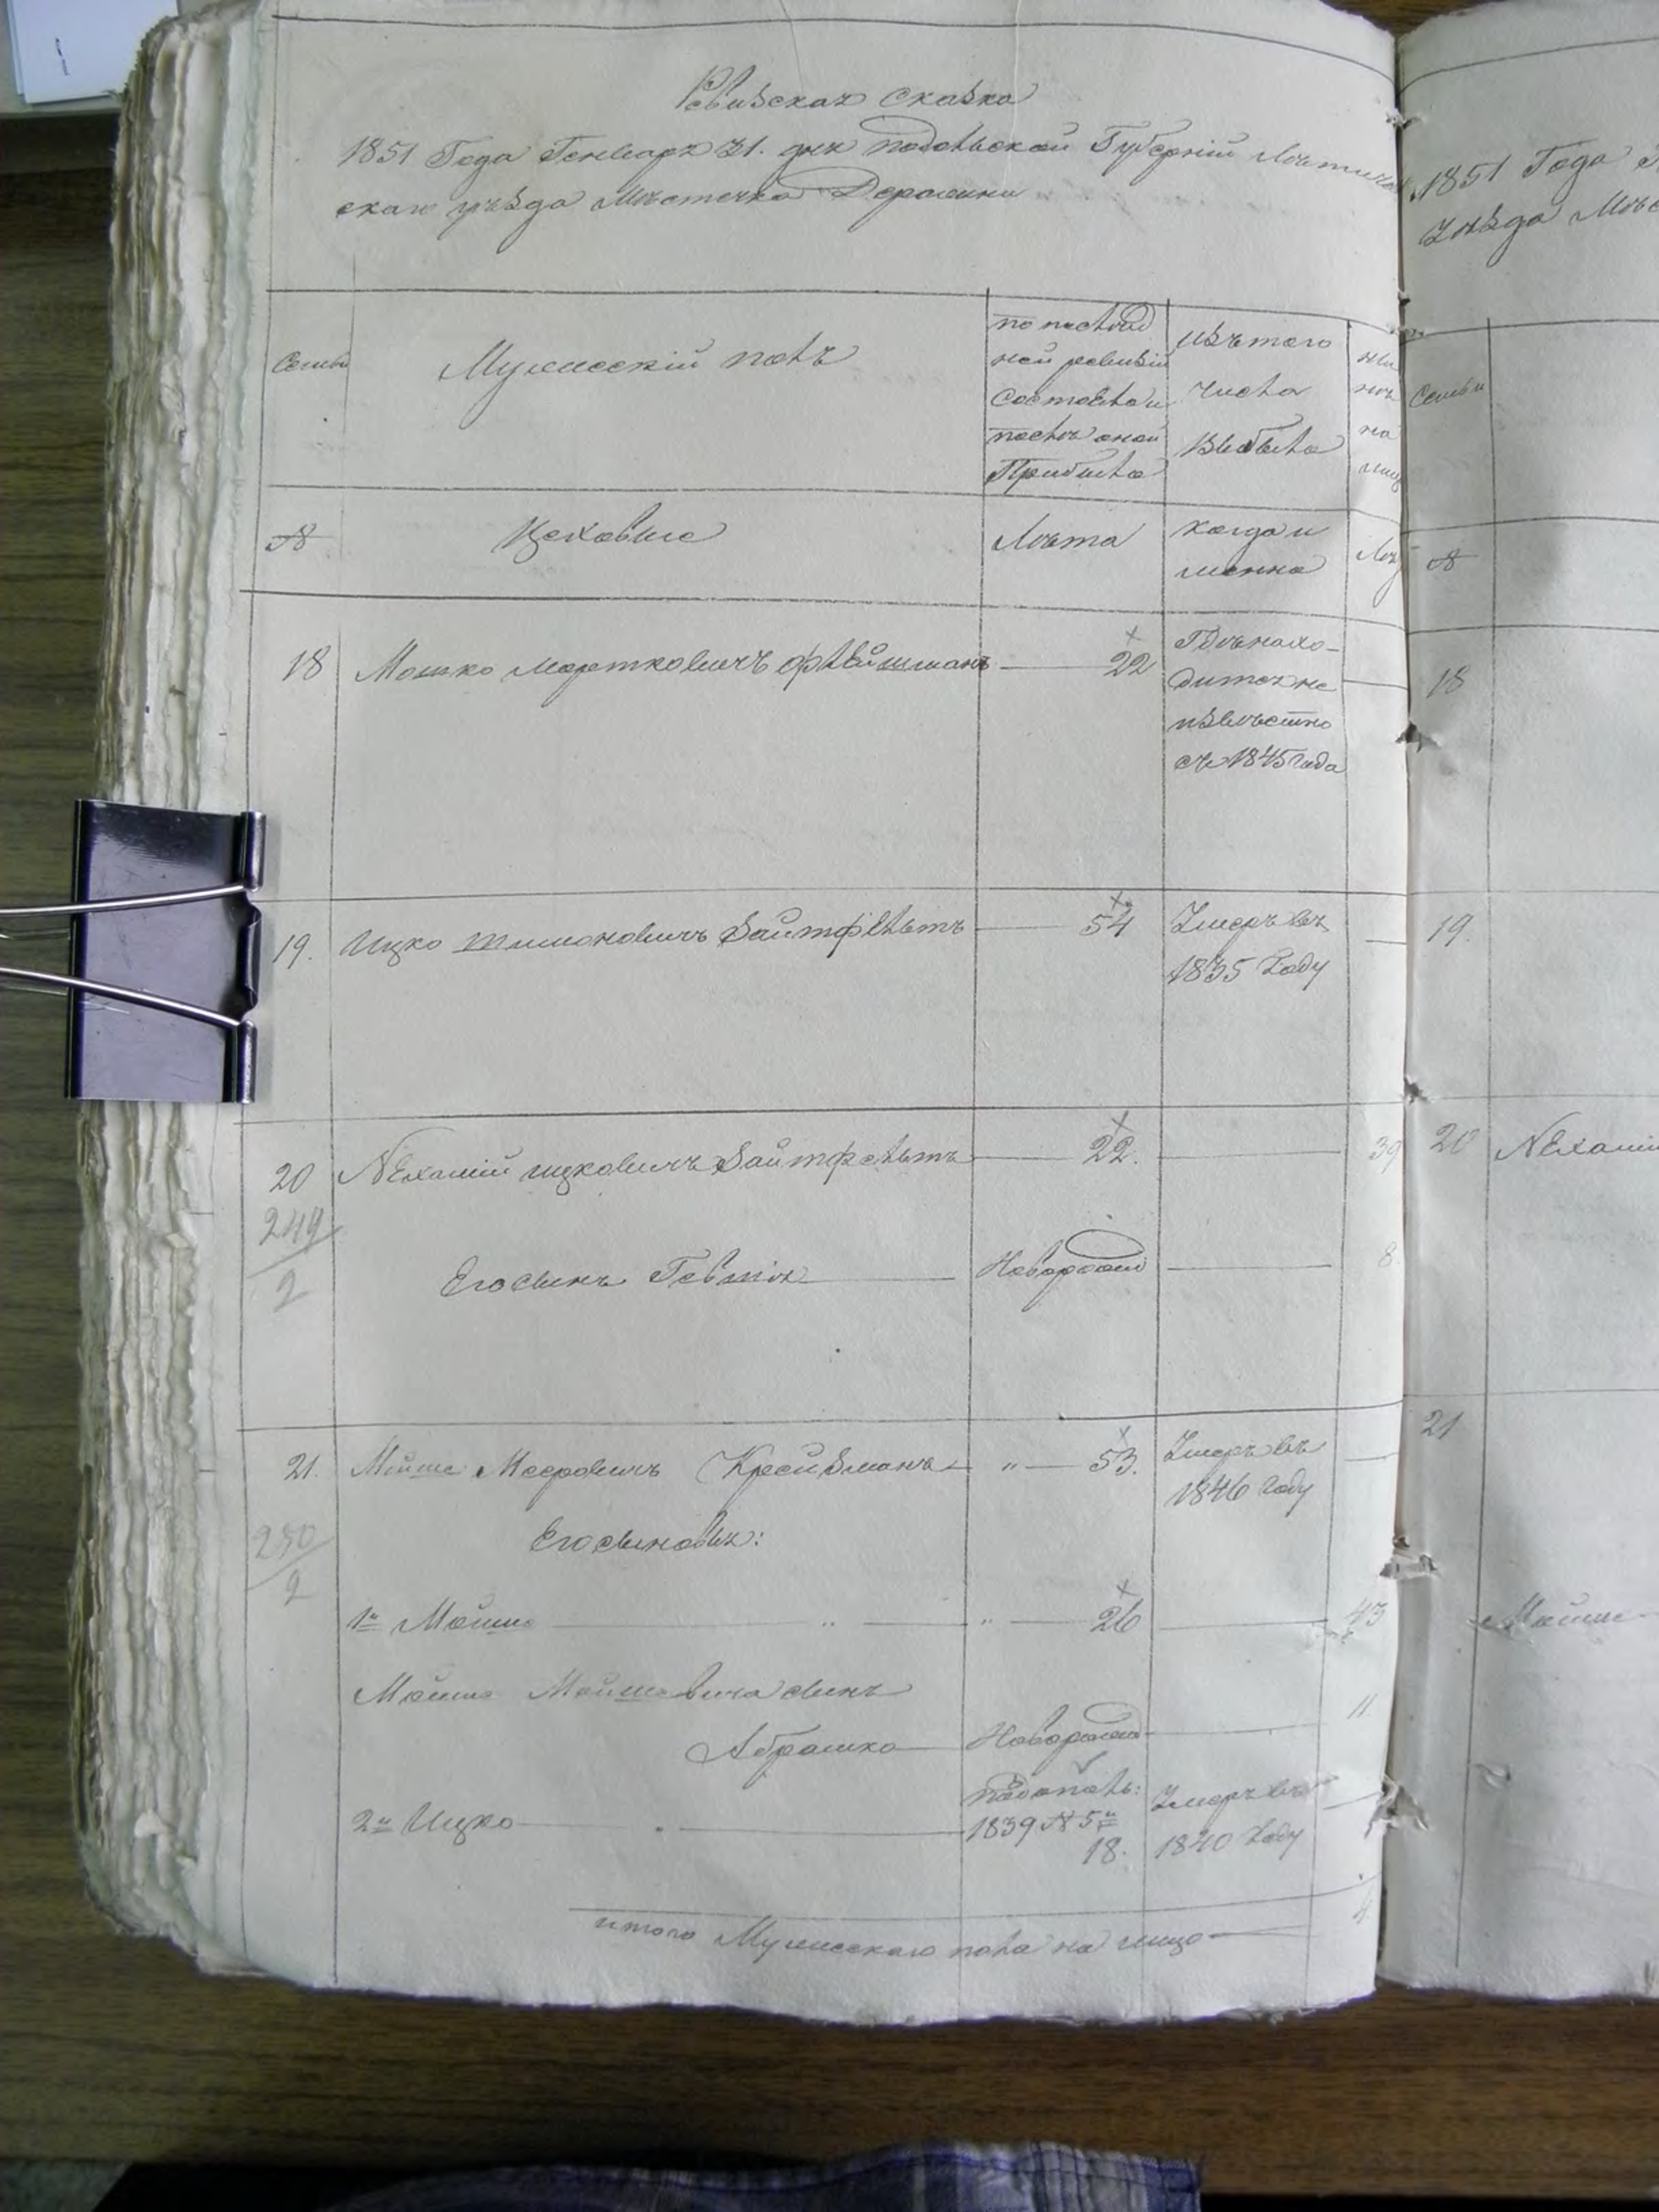 Ревизская сказка
1851 Года Генваря 31. дня подольской Губерніи Летичев
скаго уѣзда Мѣстечка Деражни
Семьи
Мужескій полъ
по послѣд
ней ревизіи
Состояло и
послѣ оной
Прибыло
Изъ того
числа
Выбыло
ны
нѣ
на
лиц
№
Цеховые
Лѣта
когда и
менно
Лѣ
18 Мошко Моргковичъ Флейшманъ 22
Гдѣ нахо-
дится не
извѣстно
съ 1845 года
19. Ицко Шимоновичъ Зайтфельтъ 54 Умеръ въ
1835 Году
20 Нехамій Ицковичъ Зайтфельтъ 22. 39
249
2
Его сынъ Гевшія Новорожд 8
21. Мойше Мееровичъ Крейзманъ 53. Умеръ въ
1846 году
Его сыновья:
250
2
1й Мойше 26 43
Мойше Мойшевича сынъ
Абрамко Новорожд 11
2й Ицко
пропоказ:
1839 № 5й
18.
Умеръ въ
1840 Году
итого Мужескаго пола на лицо 4
1851 Года
Уѣзда Мѣс
Семьи
№
18
19.
20 Нехамі
21
Мойше